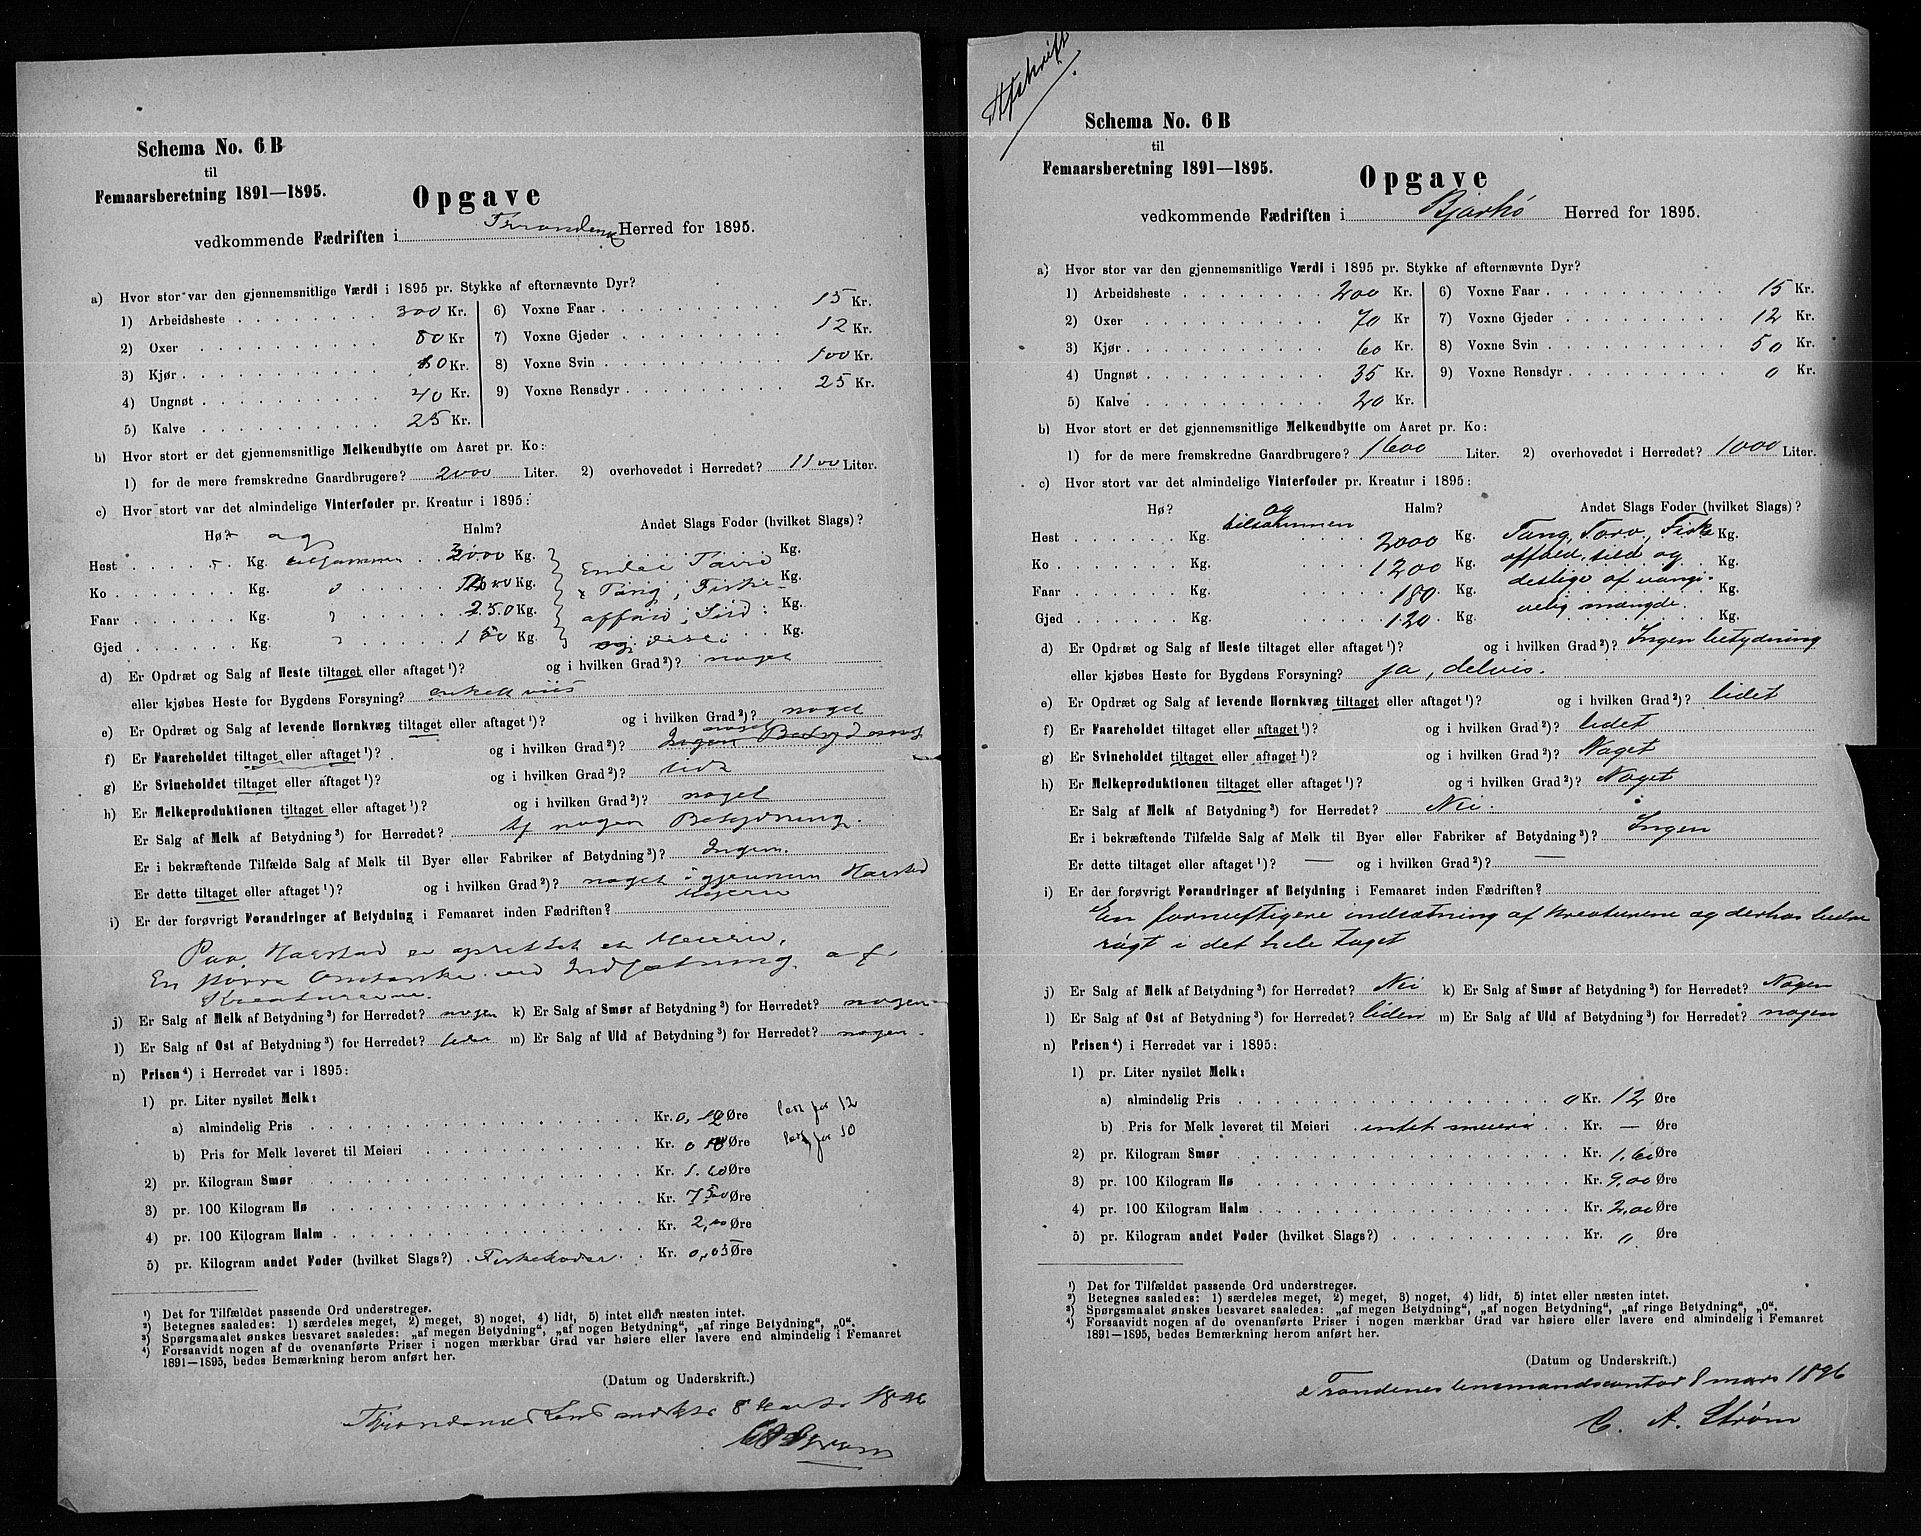 Schema No. 6 B
til
Femaarsberetning 1891—1895.
Opgave
vedkommende Fædriften i Trondenes Herred for 1895.
a) Hvor stor var den gjennemsnitlige Værdi i 1895 pr. Stykke af efternævnte Dyr?
1) Arbeidsheste 300 Kr. 6) Voxne Faar 15 Kr.
2) Oxer 80 Kr 7) Voxne Gjeder 12 Kr.
3) Kjør 80 Kr. 8) Voxne Svin 100 Kr.
4) Ungnøt 40 Kr. 9) Voxne Rensdyr 25 Kr.
5) Kalve 25 Kr.
b) Hvor stort er det gjennemsnitlige Melkeudbytte om Aaret pr. Ko:
1) for de mere fremskredne Gaardbrugere? 2000 Liter. 2) overhovedet i Herredet? 1100 Liter.
c) Hvor stort var det almindelige Vinterfoder pr. Kreatur i 1895:
Hø? og Halm? Andet Slags Foder (hvilket Slags)?
Hest Kg. tilsammen 3000 Kg. Kg.
Ko Kg. " Kg. Tang, Fiske Kg.
Faar Kg. " 250 Kg. affald, Sild Kg.
Gjed Kg. " 150 Kg. Kg.
d) Er Opdræt og Salg af Heste tiltaget eller aftaget ¹)? og i hvilken Grad ²)? noget
eller kjøbes Heste for Bygdens Forsyning? enkeltviis
e) Er Opdræt og Salg af levende Hornkvæg tiltaget eller aftaget ¹)? og i hvilken Grad ²)? noget
f) Er Faareholdet tiltaget eller aftaget ¹)? og i hvilken Grad ²)? Ingen Betydning
g) Er Svineholdet tiltaget eller aftaget ¹)? og i hvilken Grad ²)? lidt
h) Er Melkeproduktionen tiltaget eller aftaget ¹)? og i hvilken Grad ²)? noget
Er Salg af Melk af Betydning ³) for Herredet? af nogen Betydning.
Er i bekræftende Tilfælde Salg af Melk til Byer eller Fabriker af Betydning ³)? Ingen.
Er dette tiltaget eller aftaget ¹)? og i hvilken Grad ²)? noget igjennem Harstad
Mejeri
i) Er der forøvrigt Forandringer af Betydning i Femaaret inden Fædriften?
Paa Harstad er oprettet et Meieri.
En større Omtanke ved Indsætning af
Kreaturerne.
j) Er Salg af Melk af Betydning ³) for Herredet? nogen k) Er Salg af Smør af Betydning ³) for Herredet? nogen
l) Er Salg af Ost af Betydning ³) for Herredet? liden m) Er Salg af Uld af Betydning ³) for Herredet? nogen.
n) Prisen ⁴) i Herredet var i 1895:
1) pr. Liter nysilet Melk:
a) almindelig Pris Kr. 0, 12 Øre læs for 12
b) Pris for Melk leveret til Meieri Kr. 0 10 Øre læs for 10
2) pr. Kilogram Smør Kr. 1.60 Øre
3) pr. 100 Kilogram Hø Kr. 7 50 Øre
4) pr. 100 Kilogram Halm Kr. 2,00 Øre
5) pr. Kilogram andet Foder (hvilket Slags?) Fiskehoder Kr. 0,05 Øre
¹) Det for Tilfældet passende Ord understreges.
²) Betegnes saaledes: 1) særdeles meget, 2) meget, 3) noget, 4) lidt, 5) intet eller næsten intet.
³) Spørgsmaalet ønskes besvaret saaledes: „af megen Betydning“, „af nogen Betydning“, „af ringe Betydning“, „0“.
⁴) Forsaavidt nogen af de ovenanførte Priser i nogen mærkbar Grad var høiere eller lavere end almindelig i Femaaret
1891—1895, bedes Bemærkning herom anført her.
(Datum og Underskrift.)
Trondenes 8 Marts 1896
Strøm
Afskrift
Schema No. 6 B
til
Femaarsberetning 1891—1895.
Opgave
vedkommende Fædriften i Bjarkø Herred for 1895.
a) Hvor stor var den gjennemsnitlige Værdi i 1895 pr. Stykke af efternævnte Dyr?
1) Arbeidsheste 200 Kr. 6) Voxne Faar 15 Kr.
2) Oxer 70 Kr 7) Voxne Gjeder 12 Kr.
3) Kjør 60 Kr. 8) Voxne Svin 50 Kr.
4) Ungnøt 35 Kr. 9) Voxne Rensdyr 0 Kr.
5) Kalve 20 Kr.
b) Hvor stort er det gjennemsnitlige Melkeudbytte om Aaret pr. Ko:
1) for de mere fremskredne Gaardbrugere? 1600 Liter. 2) overhovedet i Herredet? 1000 Liter.
c) Hvor stort var det almindelige Vinterfoder pr. Kreatur i 1895:
Hø? og Halm? Andet Slags Foder (hvilket Slags)?
Hest Kg. tilsammen 2000 Kg. Tang, Tarv, Fiske Kg.
Ko Kg. 1200 Kg. affald, sild og Kg.
Faar Kg. 180 Kg. deslige af uangi- Kg.
Gjed Kg. 120 Kg. velig mængde. Kg.
d) Er Opdræt og Salg af Heste tiltaget eller aftaget ¹)? og i hvilken Grad ²)? Ingen betydning
eller kjøbes Heste for Bygdens Forsyning? ja, delvis.
e) Er Opdræt og Salg af levende Hornkvæg tiltaget eller aftaget ¹)? og i hvilken Grad ²)? lidet
f) Er Faareholdet tiltaget eller aftaget ¹)? og i hvilken Grad ²)? lidet
g) Er Svineholdet tiltaget eller aftaget ¹)? og i hvilken Grad ²)? Noget
h) Er Melkeproduktionen tiltaget eller aftaget ¹)? og i hvilken Grad ²)? Noget
Er Salg af Melk af Betydning ³) for Herredet? Nei.
Er i bekræftende Tilfælde Salg af Melk til Byer eller Fabriker af Betydning ³)? Ingen
Er dette tiltaget eller aftaget ¹)? — og i hvilken Grad ²)? —
i) Er der forøvrigt Forandringer af Betydning i Femaaret inden Fædriften?
En fornuftigere indsætning af kreaturene og derhos bedre
røgt i det hele taget
j) Er Salg af Melk af Betydning ³) for Herredet? Nei k) Er Salg af Smør af Betydning ³) for Herredet? Nogen
l) Er Salg af Ost af Betydning ³) for Herredet? liden m) Er Salg af Uld af Betydning ³) for Herredet? nogen
n) Prisen ⁴) i Herredet var i 1895:
1) pr. Liter nysilet Melk:
a) almindelig Pris 0 Kr. 12 Øre
b) Pris for Melk leveret til Meieri intet meieri Kr. — Øre
2) pr. Kilogram Smør Kr. 1.60 Øre
3) pr. 100 Kilogram Hø Kr. 9,00 Øre
4) pr. 100 Kilogram Halm Kr. 2,00 Øre
5) pr. Kilogram andet Foder (hvilket Slags?) Kr. 0. Øre
¹) Det for Tilfældet passende Ord understreges.
²) Betegnes saaledes: 1) særdeles meget, 2) meget, 3) noget, 4) lidt, 5) intet eller næsten intet.
³) Spørgsmaalet ønskes besvaret saaledes: „af megen Betydning“, „af nogen Betydning“, „af ringe Betydning“, „0“.
⁴) Forsaavidt nogen af de ovenanførte Priser i nogen mærkbar Grad var høiere eller lavere end almindelig i Femaaret
1891—1895, bedes Bemærkning herom anført her.
(Datum og Underskrift.)
Trondenes lensmandscontor 8 mars 1896
C. A. Strøm